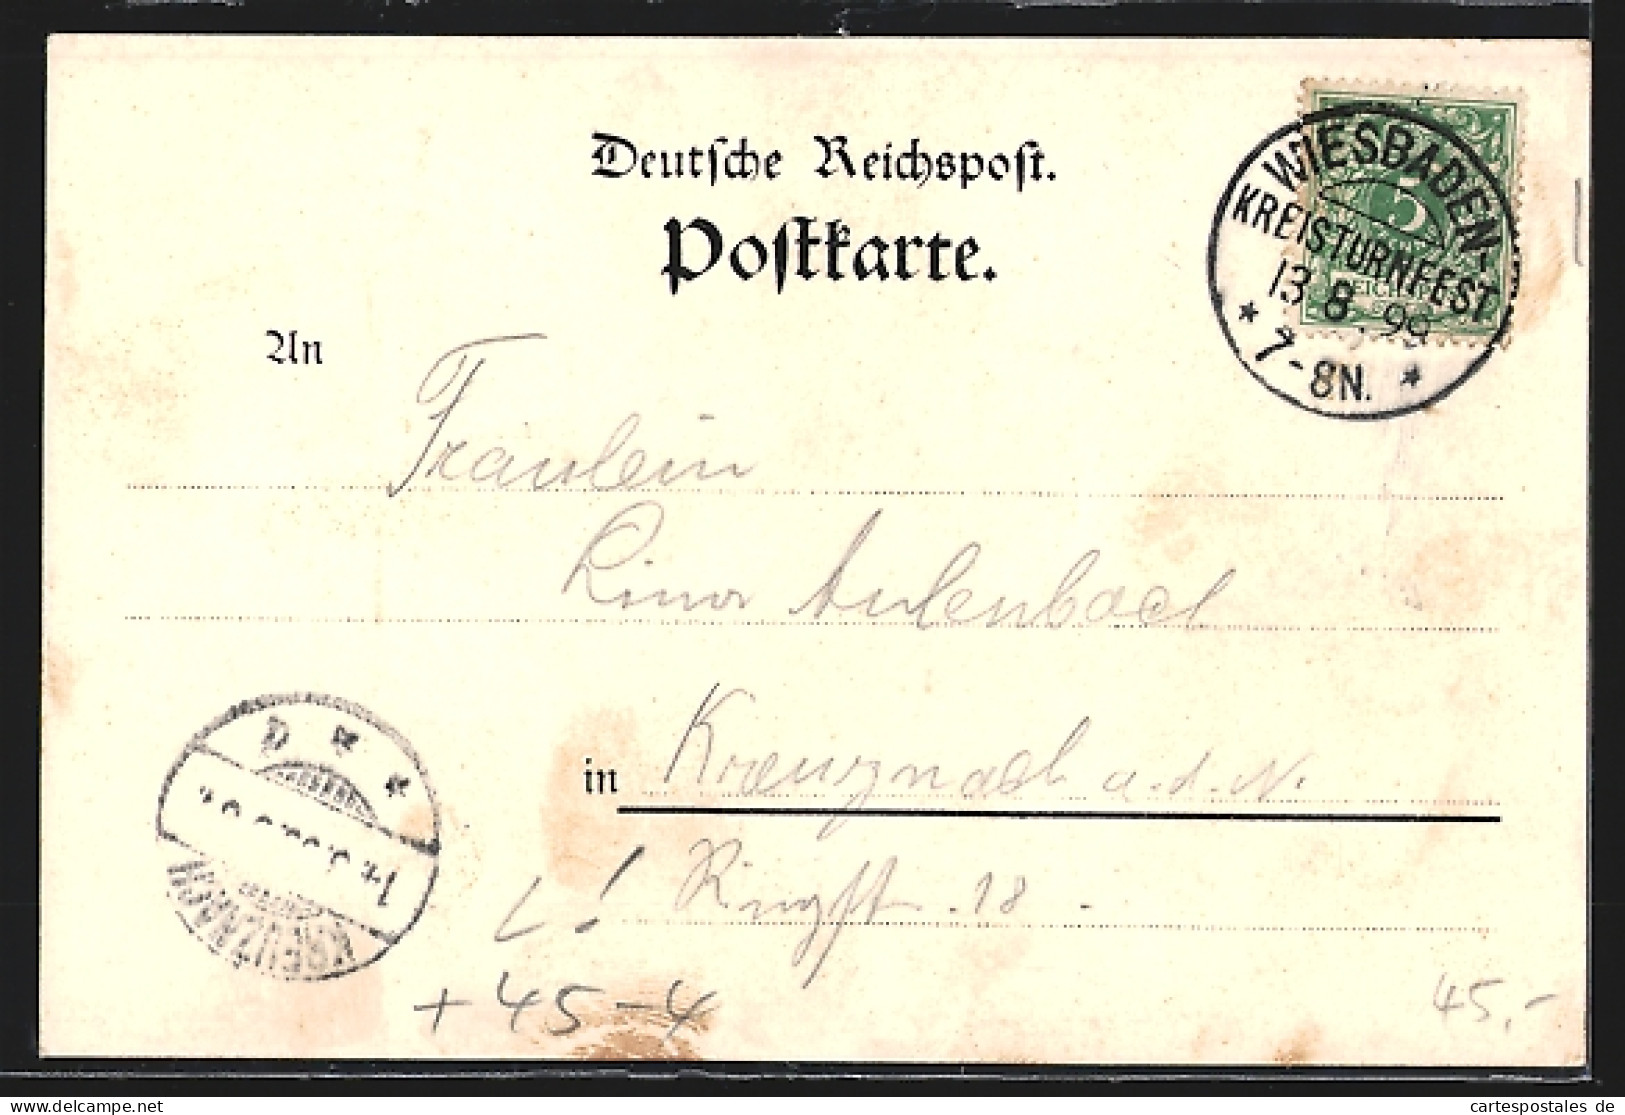 Deutsche Reichspost.
Postkarte.
WIESBADEN-
KREISTURNFEST
13.8.99
* 7-8N. *
5
An
Fräulein
Lina Aulenbach
in Kreuznach a.d.N.
Ringstr. 18.
KREUZNACH
L!
+45-4
45,-
delcampe.net
cartespostales de